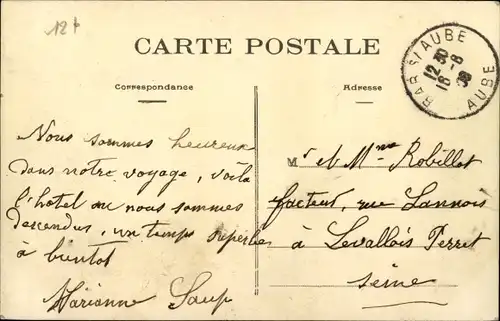 12f
CARTE POSTALE
BAR S/AUBE
12 30
16 - 8
AUBE
Correspondance
Adresse
Nous sommes heureux
dans notre voyage, voila
l'hotel ou nous sommes
descendus, un temps superbe
à bientot
Marianne
Mr et Mme Robillot
facteur, rue Lannois
à Levallois Perret
Seine